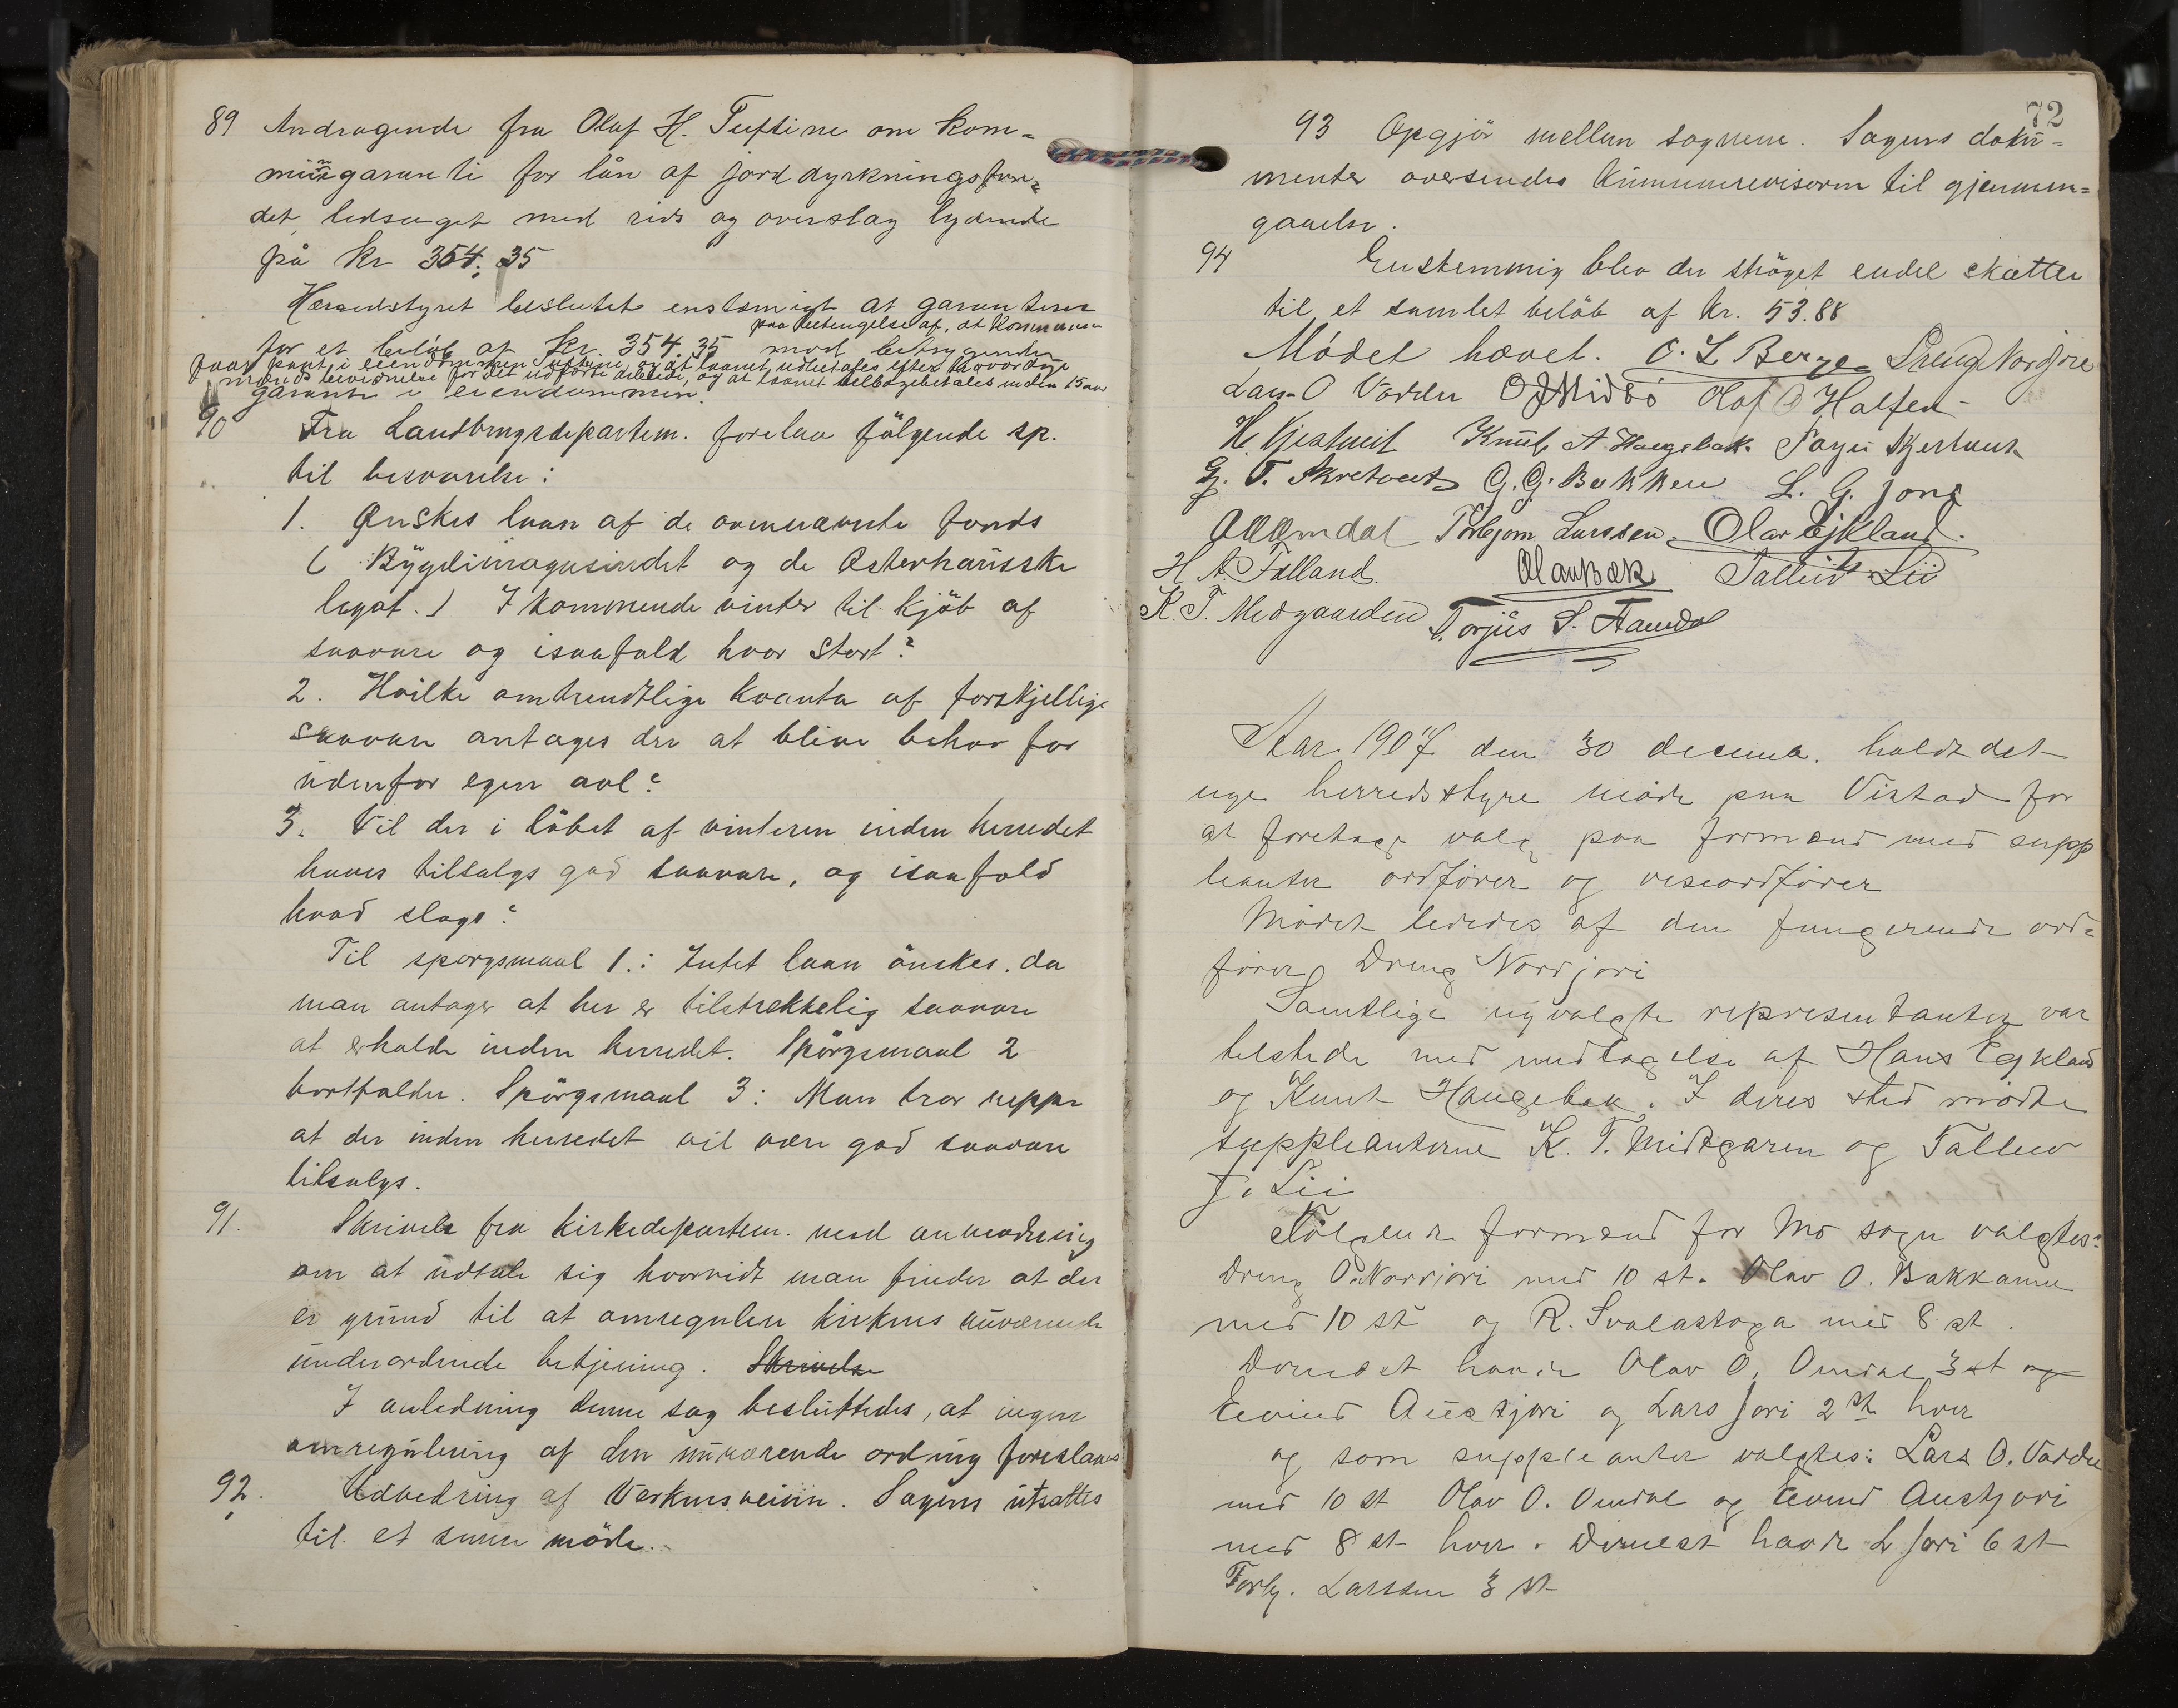 89 Andragende fra Olaf H. Tuftine om kom=
mungaranti for lån af jorddyrkningsfon=
det, ledsaget med rids og overslag lydende
på Kr 354: 35
Herredstyret besluttet enstemigt at garantere
paa betingelse af, at Kommunen
for et beløb af Kr. 354.35 mod betryggende
faar pant i eiendommen Tuftine, og at laanet udbetales efter
mænds bevidnelse for det udførte arbeide, og at laanet tilbagebetales inden 15 aar
garanti i eiendommen.
90 Fra Landbrugsdepartem. forelaa følgende sp.
til besvarelse:
1. Ønskes laan af de ovennævnte fonds
( Bygdemagasindet og de Østerhausske
legat.) I kommende vinter til kjøb af
saavare og isaafald hvor stort?
2. Hvilke omtrendtlige kvanta af forskjellige
saavare antages der at blive behov for
udenfor egen avl?
3. Vil der i løbet af vinteren inden herredet
haves tilsalgs god saavare, og isaafald
hvad slags?
Til spørgsmaal 1.: Intet laan ønskes. da
man antager at her er tilstrekkelig saavare
at erholde inden herredet. Spørgsmaal 2
bortfalder. Spørgsmaal 3: Man tror neppe
at der inden herredet vil være god saavare
tilsalgs.
91. Skrivels fra kirkedepartem. med anmodning
om at udtale sig hvorvidt man finder at der
er grund til at omregulere kirkens nuværende
underordende betjening. Skrivelse
I anledning denne sag besluttedes, at ingen
omregulering af den nuværende ordning foreslaaes
92. Udbedring af Verksveien. Sagens utsattes
til et senere møde.
72
93 Opgjør mellem sognene. Sagens doku=
menter oversendes kummunerevisoren til gjennem=
gaaelse.
94 Enstemmig blev der strøget endel skatter
til et samlet beløb af Kr. 53.88
Mødet hævet. O. L Berge Dreng Nordjore
Lars O Vadder O J Midbø Olaf O Halfen
H. Kjestveit Knut A Haugebak. Targei Skjertveit
G. T. Skretveit G. G. Bakken L. G. Jore
O O Omdal Torbjørn Larssen. Olav Ejkland.
H A. Følland. Olav Bak Talleiv Lii
K. T. Midgaarden Torjus S. Hamdal
Aar 1907 den 30 decema. holdt det
nye herredsstyre møde paa Vistad for
at foretage valg paa formænd med supp
leanter ordfører og viseordfører
Mødet lededes af den fungerende ord=
fører Dreng Nordjori
Samtlige nyvalgte representanter var
telstede med undtagelse af Hans Egkland
og Knut Haugebak. I deres sted mødte
suppleanterne K. T. Midtgaren og Tallev
J. Lii
Følgende formænd for Mo sogn valgtes:
Dreng O. Norrjori med 10 st. Olav O. Bakkane
med 10 st og R. Svalastoga med 8 st.
Dernæst havde Olav O. Omdal 3 st og
Eevind Austjori og Lars Jori 2 st hver
og som suppleanter valgtes: Lars O. Vadder
med 10 st Olav O. Omdal og Eevind Austjori
med 8 st hver. Dernæst havde L Jori 6 st
Torbj. Larssen 3 st